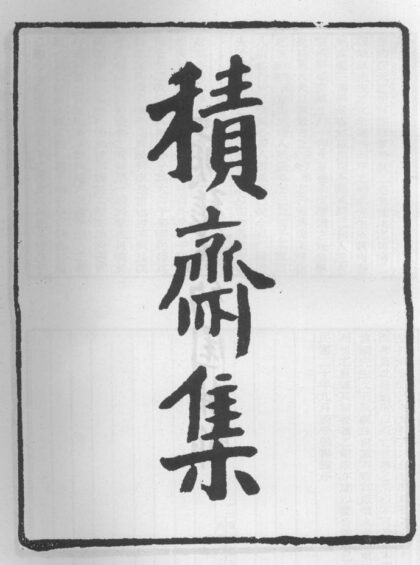 積齋集